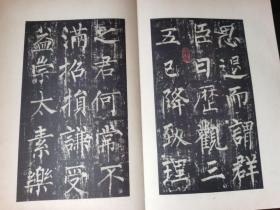 思退而謂群
臣曰歷觀三
五已降致理
之君何常不
滿招損謙受
益崇大素樂